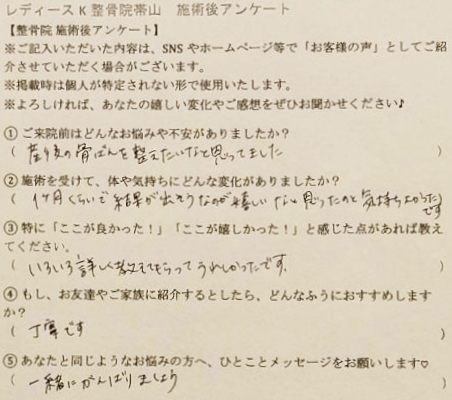 レディースK整骨院帯山　施術後アンケート
【整骨院 施術後アンケート】
※ご記入いただいた内容は、SNSやホームページ等で「お客様の声」としてご紹
介させていただく場合がございます。
※掲載時は個人が特定されない形で使用いたします。
※よろしければ、あなたの嬉しい変化やご感想をぜひお聞かせください♪
① ご来院前はどんなお悩みや不安がありましたか？
（ 産後の骨ばんを整えたいなと思ってました ）
② 施術を受けて、体や気持ちにどんな変化がありましたか？
（ 1ヶ月くらいで結果が出そうなのが嬉しいなと思ったのと気持ちよかった
です ）
③ 特に「ここが良かった！」「ここが嬉しかった！」と感じた点があれば教え
てください。
（ いろいろ詳しく教えてもらってうれしかったです. ）
④ もし、お友達やご家族に紹介するとしたら、どんなふうにおすすめします
か？
（ 丁寧です ）
⑤ あなたと同じようなお悩みの方へ、ひとことメッセージをお願いします♡
（ 一緒にがんばりましょう ）